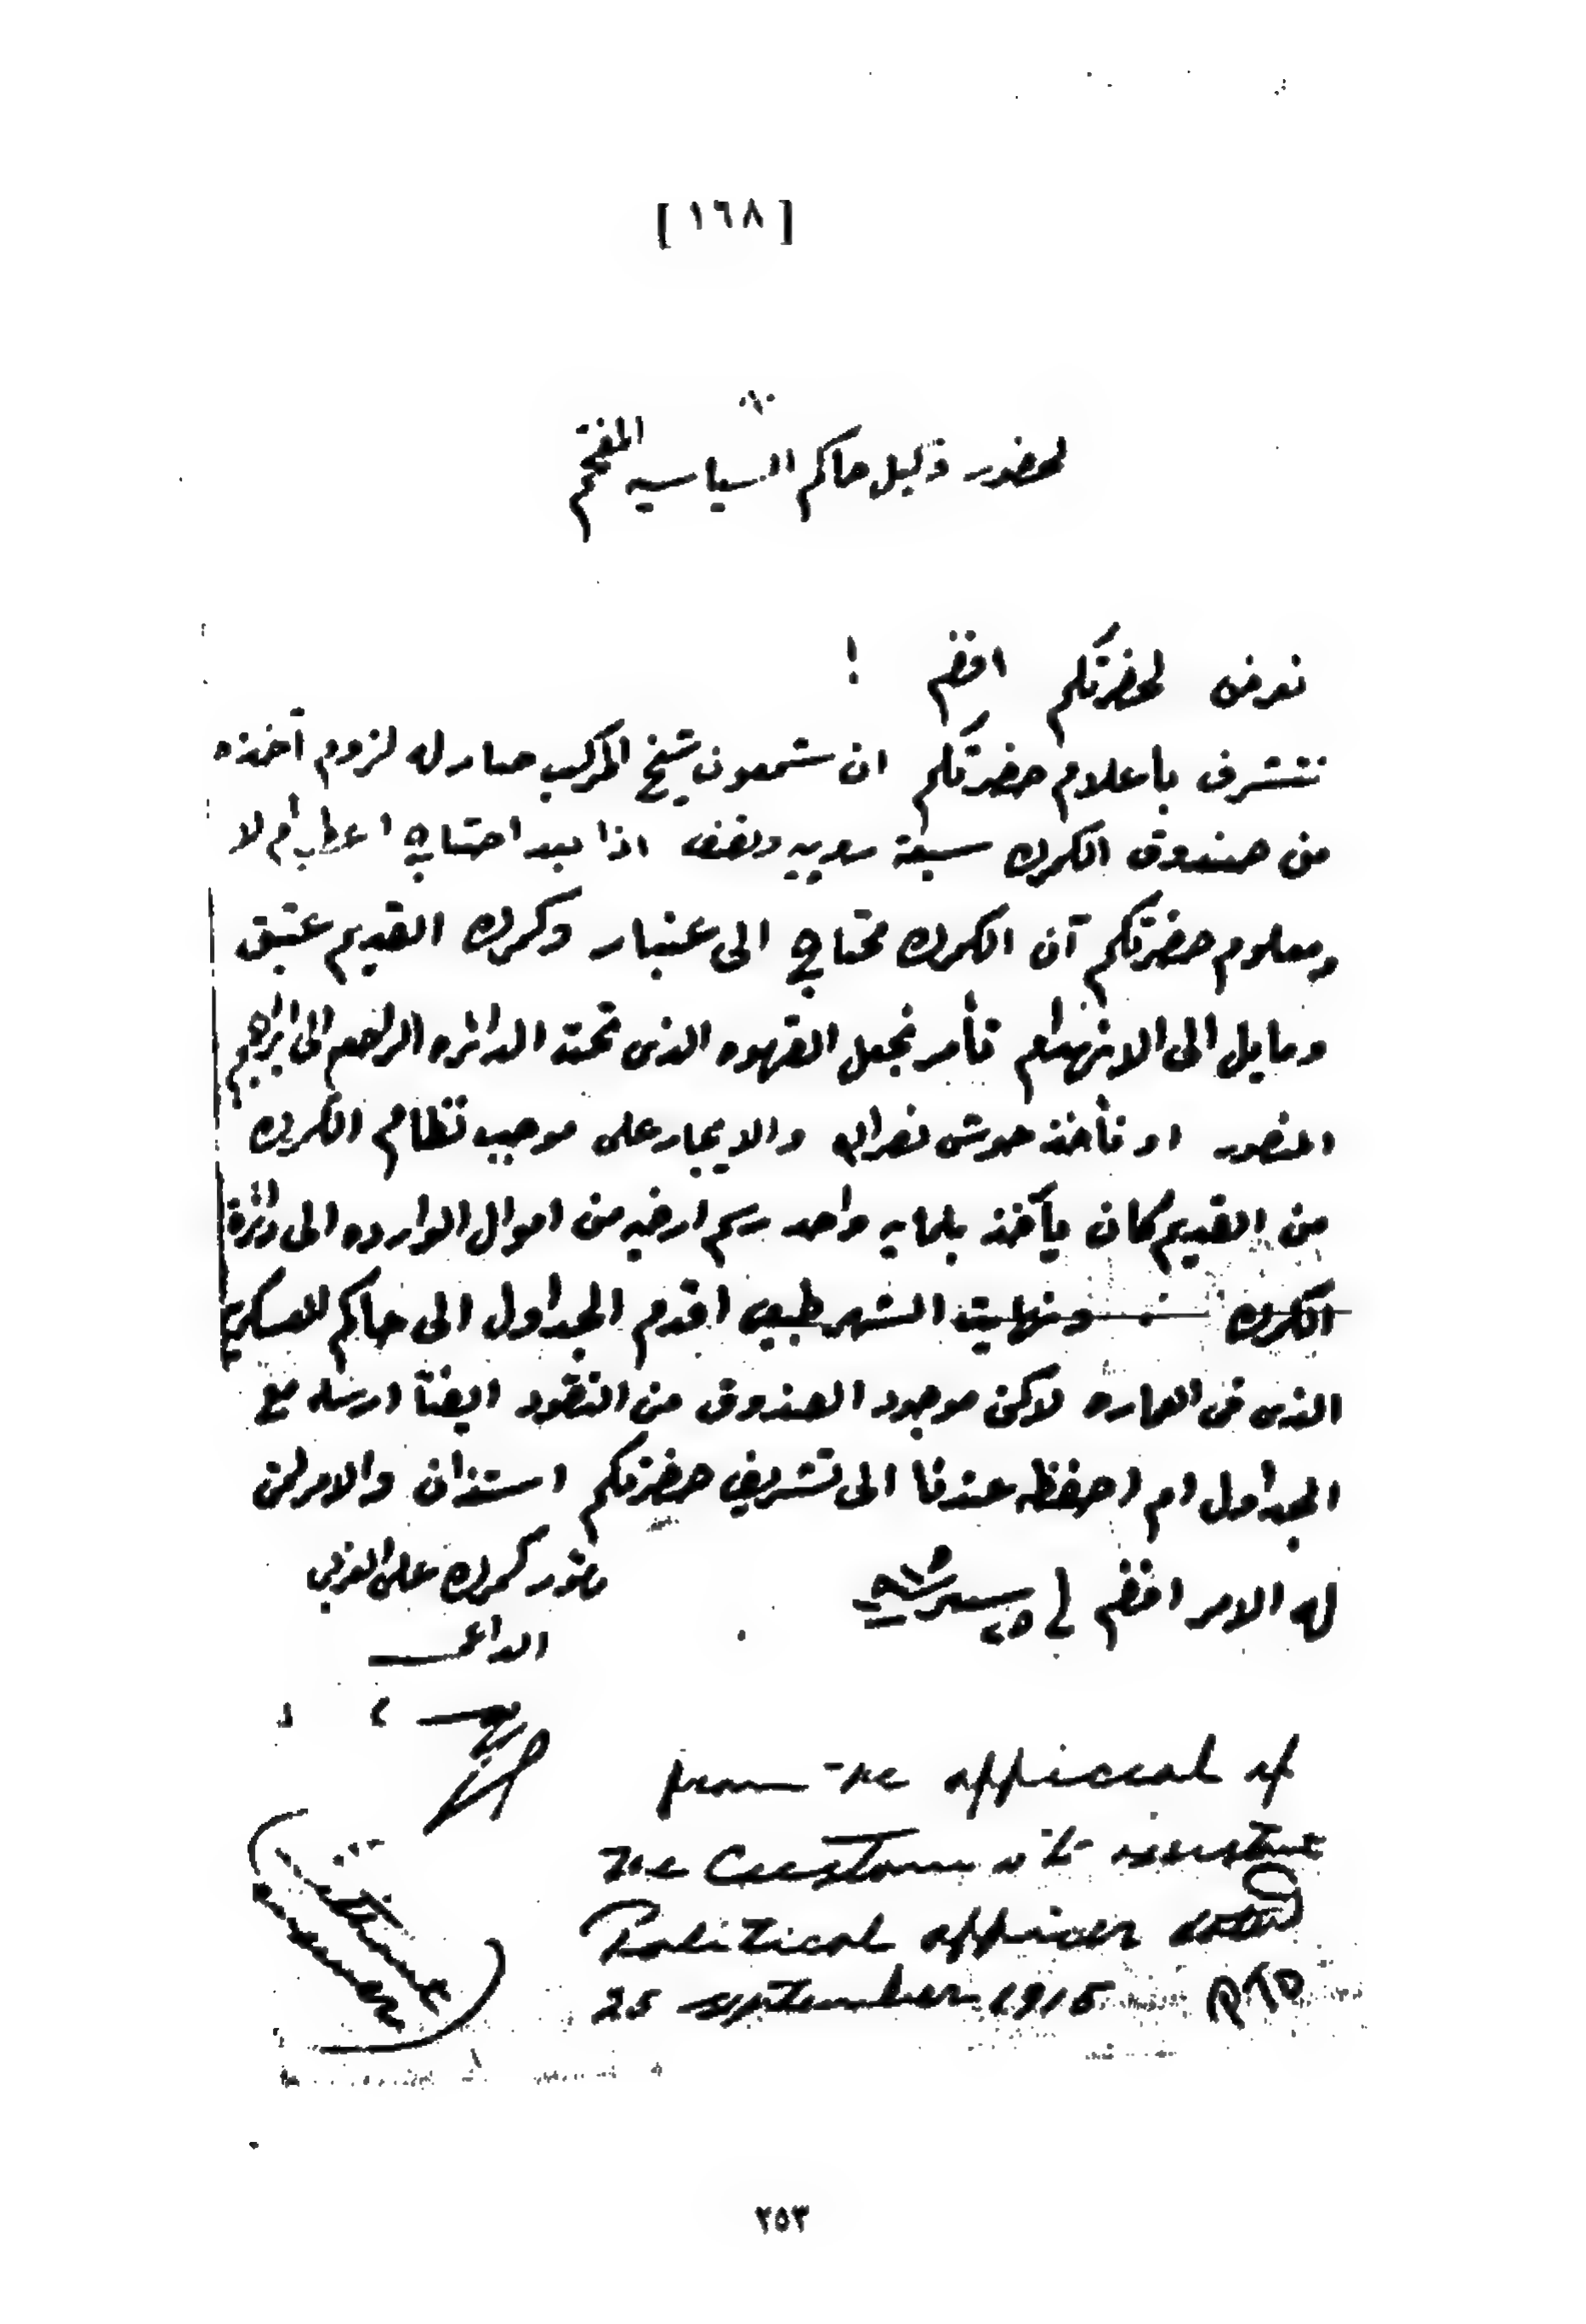 [ ١٦٨ ]
لحضور وكيل حاكم السياسيه المفخم
نعرض لحضرتكم افندم !
نتشرف باعلام حضرتكم ان شمعون شيخ المركب صار له لزوم آخذه
من صندوق الكمرك سبعة روبيه ونصف اذا بعد احتاج اعطيه أم لا
ومعلوم حضرتكم آن الكمرك محتاج الى عنبار وكمرك القديم عتيق
ومايل الى الانهدام تأمر نجعل القهوه الذى تحت الدائره الراجع الى ابراهيم
المنصور او نأخذ حوش نصرالله والايجار على موجب نظام الكمرك
من القديم كان يآخذ بلمايه واحد رسم ارضيه من اموال الوارده الى دائرة
الكمرك ونهايت الشهر طبعى اقدم الجداول الى حاكم العسكرى
الذى فى العماره لاكن موجود الصندوق من النقود ايضآ ارسله مع
الجداول ام احفظه عندنا الى تشريف حضرتكم استذان والامر لمن
له الامر افندم فى ٢٥ سبتمبر ٩١٥
مأمور كمرك على الغربى
الداعى
from the official of
the Customs to assistant
Political officer
25 september 1915 PTO
٢٥٣